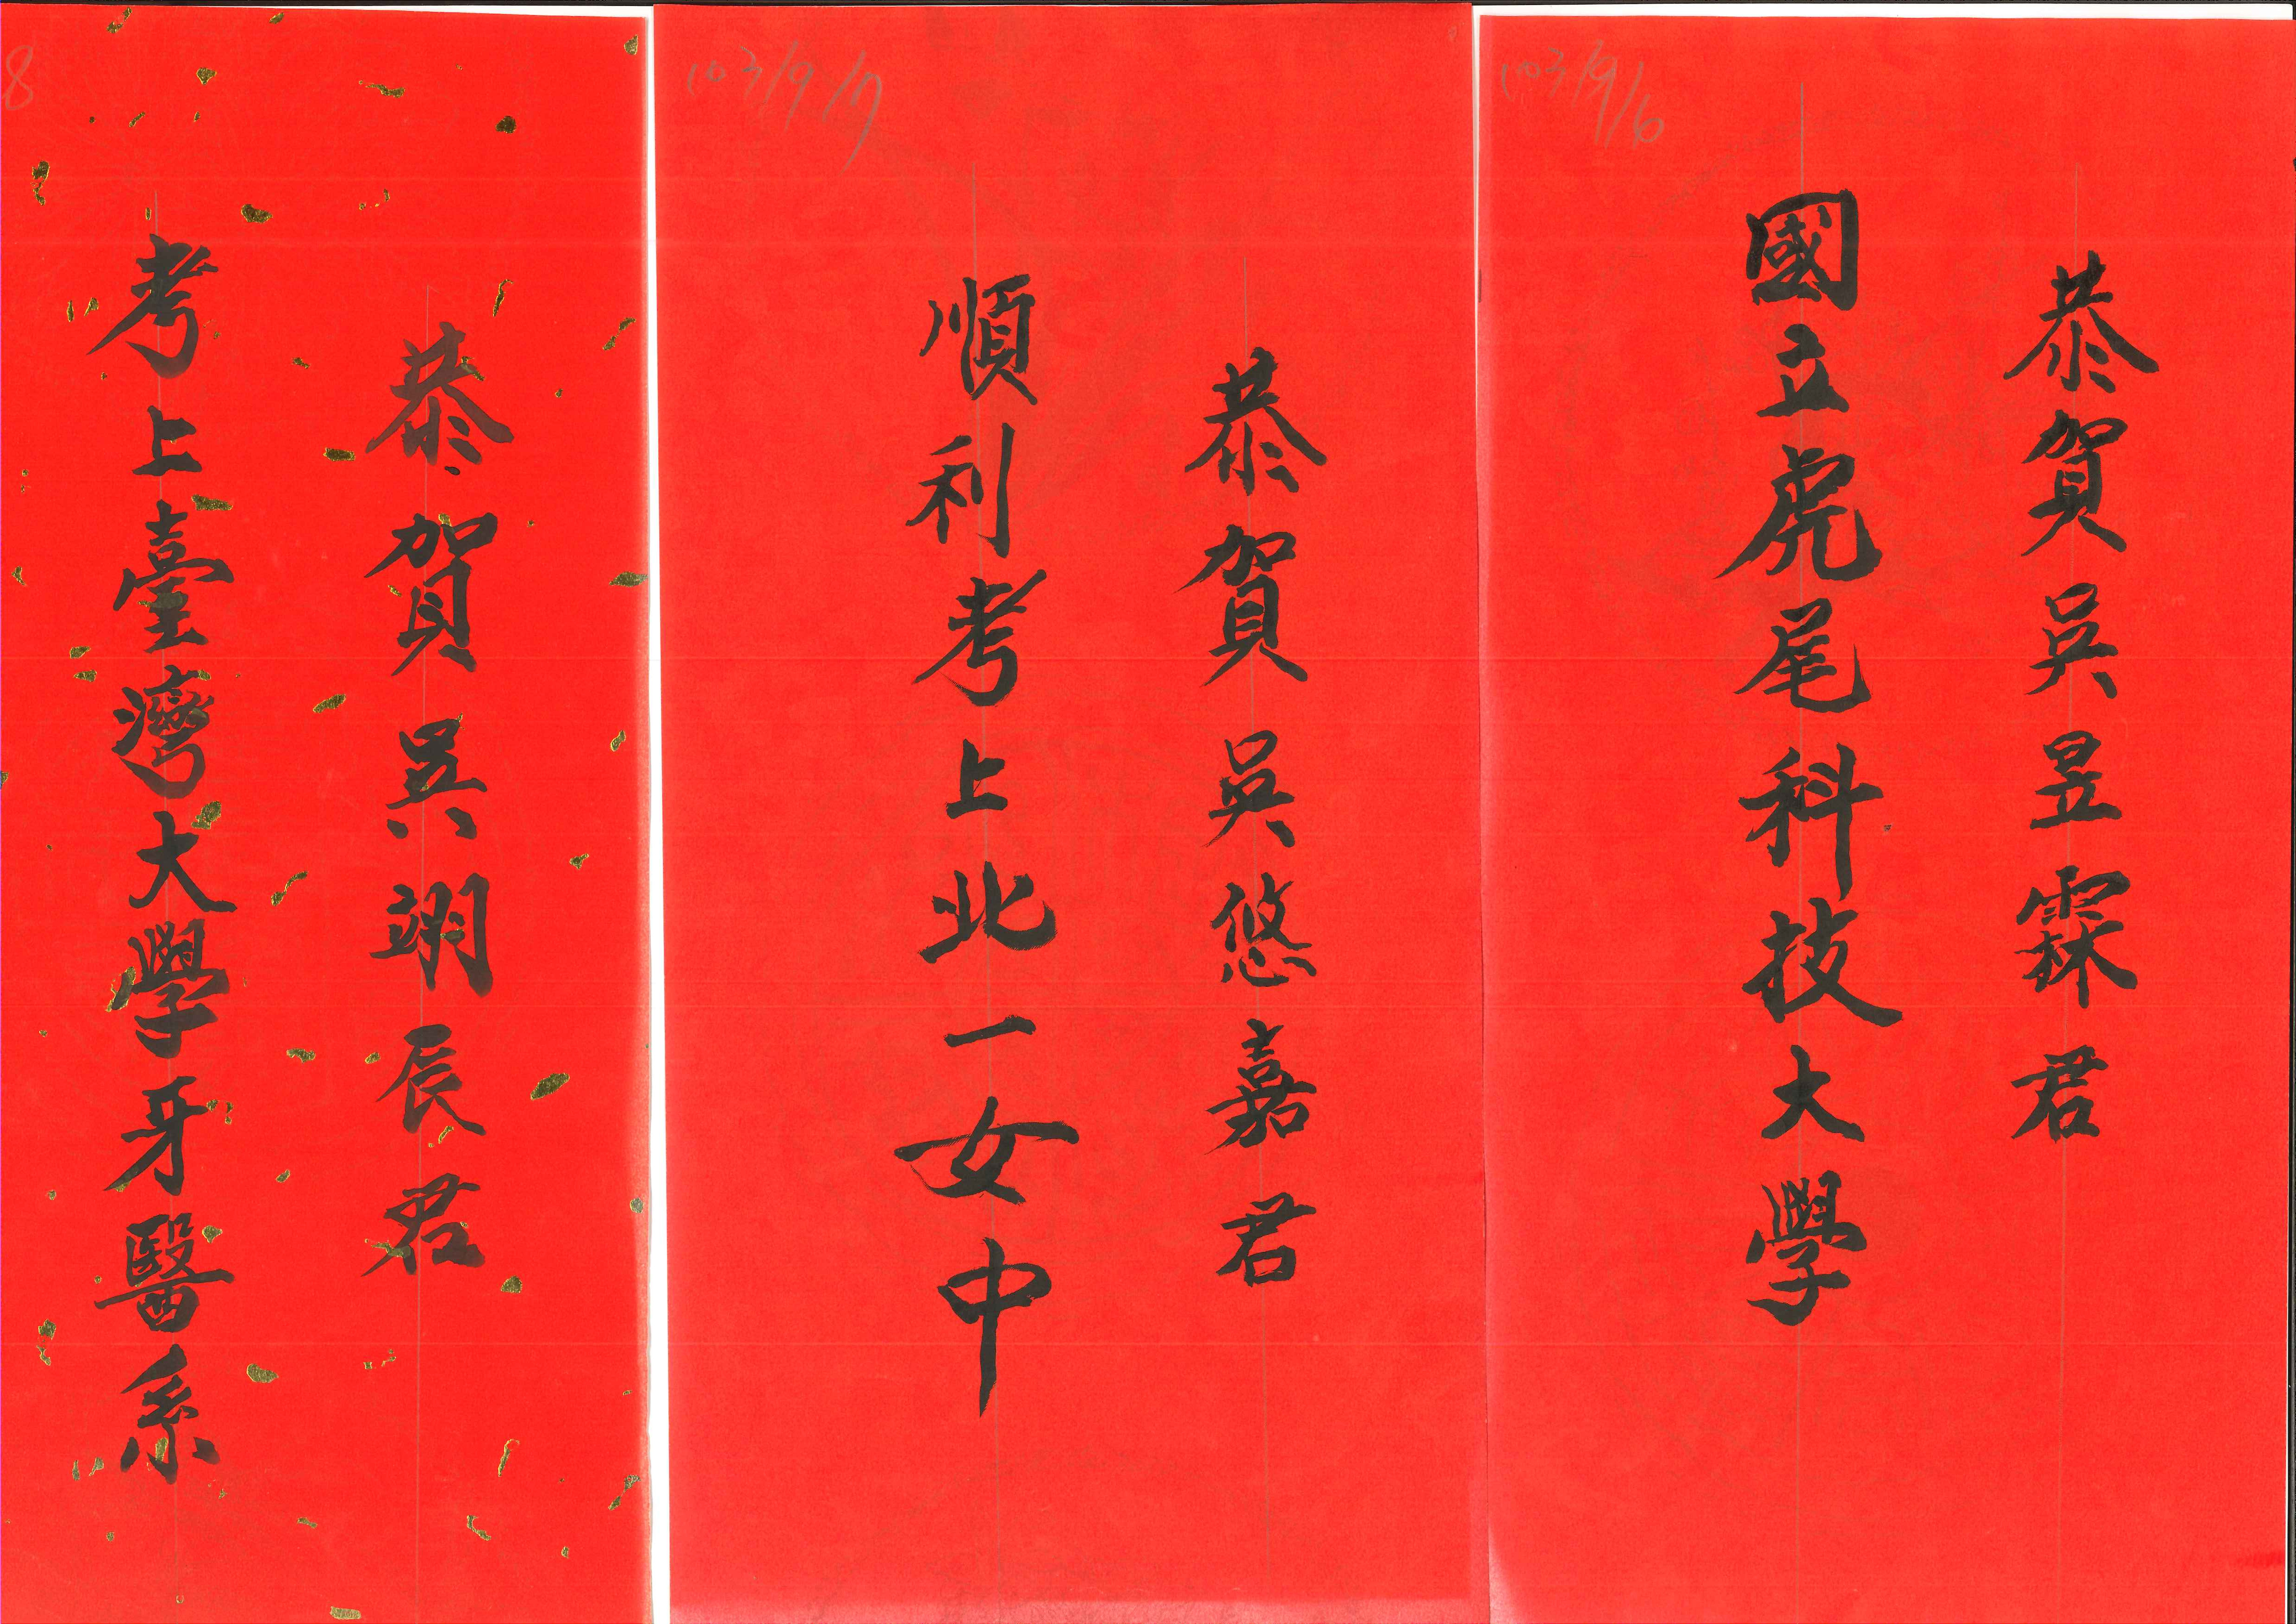 103/9/6
恭賀吳昱霖君
國立虎尾科技大學
103/9/7
恭賀吳悠嘉君
順利考上北一女中
8
恭賀吳翊辰君
考上臺灣大學牙醫系